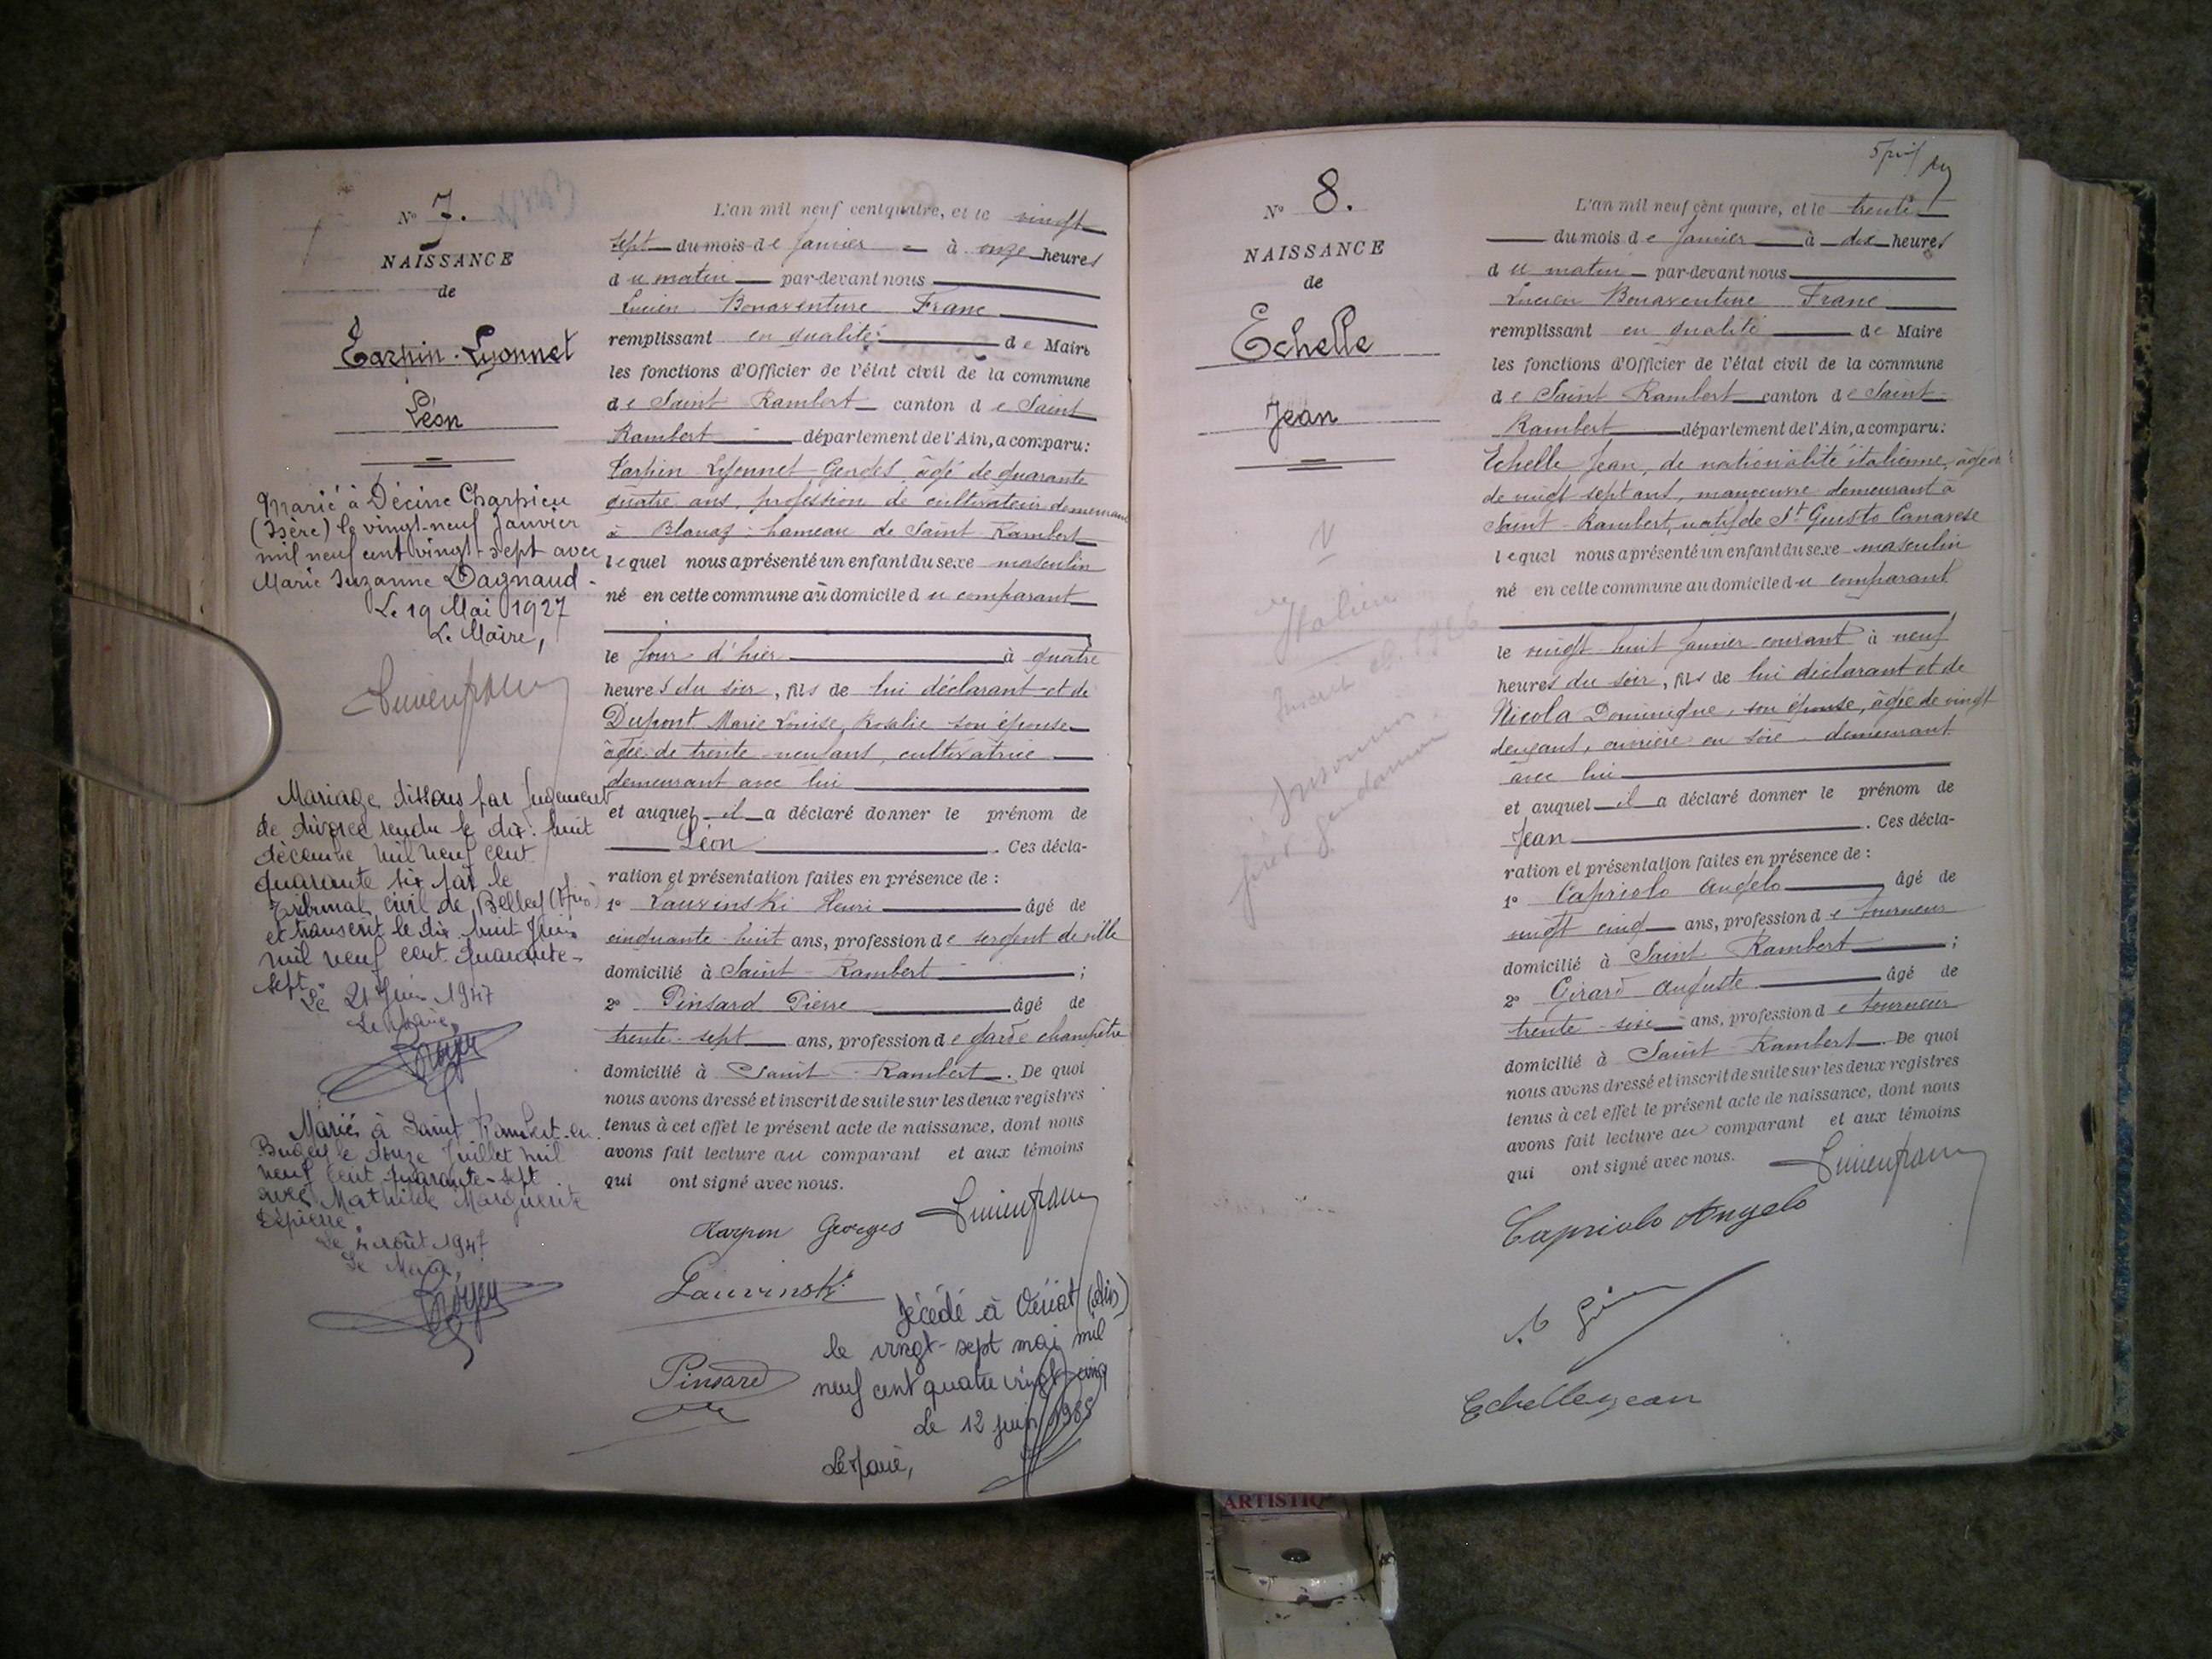 N° 7.
NAISSANCE
de
Tarpin-Lyonnet
Léon
Marié à Décine Charpieu
(Isère) le vingt-neuf Janvier
mil neuf cent vingt-sept avec
Marie Suzanne Dagnaud.
Le 19 Mai 1927
Le Maire,
Mariage dissous par Jugement
de divorce rendu le dix-huit
décembre mil neuf cent
quarante six par le
Tribunal civil de Belley (Ain)
et transcrit le dix huit Juin
mil neuf cent quarante-
sept.
Le 21 Juin 1947
Le Maire,
Marié à Saint Rambert-en
Bugey le douze Juillet mil
neuf cent quarante-sept
avec Mathilde Marguerite
Dépierre.
Le 4 Août 1947
Le Maire,
L'an mil neuf cent quatre, et le vingt
sept du mois de Janvier à onze heures
du matin par-devant nous
Lucien Bonaventure Franc
remplissant en qualité de Maire
les fonctions d'Officier de l'état civil de la commune
de Saint Rambert canton de Saint
Rambert département de l'Ain, a comparu:
Tarpin Lyonnet Georges âgé de quarante
quatre ans, profession de cultivateur demeurant
à Blanaz hameau de Saint-Rambert
lequel nous a présenté un enfant du sexe masculin
né en cette commune au domicile du comparant
le jour d'hier à quatre
heures du soir, fils de lui déclarant et de
Dupont Marie Louise Rosalie son épouse
âgée de trente-neuf ans, cultivatrice
demeurant avec lui
et auquel il a déclaré donner le prénom de
Léon. Ces décla-
ration et présentation faites en présence de:
1° Lauvinski Henri âgé de
cinquante-huit ans, profession de sergent de ville
domicilié à Saint-Rambert;
2° Pinsard Pierre âgé de
trente-sept ans, profession de garde champêtre
domicilié à Saint-Rambert. De quoi
nous avons dressé et inscrit de suite sur les deux registres
tenus à cet effet le présent acte de naissance, dont nous
avons fait lecture au comparant et aux témoins
qui ont signé avec nous.
Tarpin Georges Lucien Franc
Lauvinski
Pinsard
Décédé à Vériat (Ain)
le vingt-sept mai mil
neuf cent quatre vingt-cinq
Le 12 juin 1985
Le Maire,
5 juil
N° 8.
NAISSANCE
de
Echelle
Jean
V
Italien
L'an mil neuf cent quatre, et le trente
du mois de Janvier à dix heures
du matin par-devant nous
Lucien Bonaventure Franc
remplissant en qualité de Maire
les fonctions d'Officier de l'état civil de la commune
de Saint Rambert canton de Saint-
Rambert département de l'Ain, a comparu:
Echelle Jean, de nationalité italienne, âgé
de vingt sept ans, manoeuvre demeurant à
Saint-Rambert, natif de St Giusto Canavese
lequel nous a présenté un enfant du sexe masculin
né en cette commune au domicile du comparant
le vingt huit Janvier courant à neuf
heures du soir, fils de lui déclarant et de
Nicola Dominique, son épouse, âgée de vingt
deux ans, ouvrière en soie demeurant
avec lui
et auquel il a déclaré donner le prénom de
Jean. Ces décla-
ration et présentation faites en présence de:
1° Capriolo Angelo âgé de
vingt cinq ans, profession de tourneur
domicilié à Saint Rambert;
2° Girard Auguste âgé de
trente-six ans, profession de tourneur
domicilié à Saint Rambert. De quoi
nous avons dressé et inscrit de suite sur les deux registres
tenus à cet effet le présent acte de naissance, dont nous
avons fait lecture au comparant et aux témoins
qui ont signé avec nous. Lucien Franc
Capriolo Angelo
Echelle Jean
ARTISTIQ